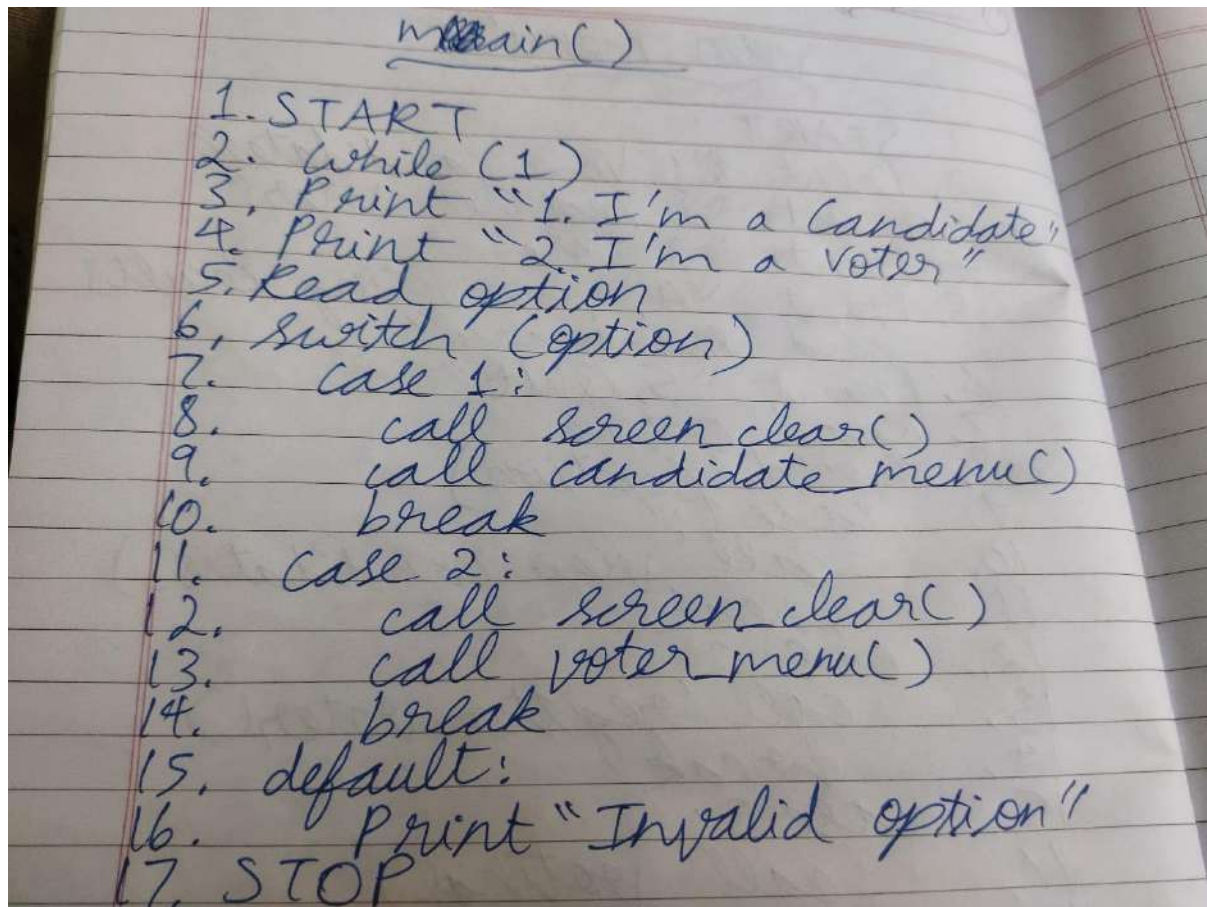 main()
1. START
2. while (1)
3. Print "1. I'm a Candidate"
4. Print "2. I'm a Voter"
5. Read option
6. switch (option)
7. case 1:
8. call screen_clear()
9. call candidate_menu()
10. break
11. case 2:
12. call screen_clear()
13. call voter_menu()
14. break
15. default:
16. Print "Invalid option"
17. STOP